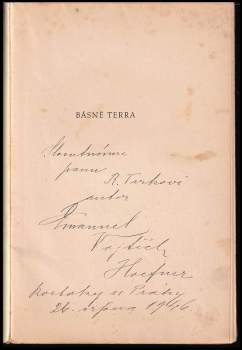 BÁSNĚ TERRA
Slovutnému
panu
R. Turkovi
autor
Emanuel
Vojtěch
Hoefner
Roztoky u Prahy
26. srpna 1946.